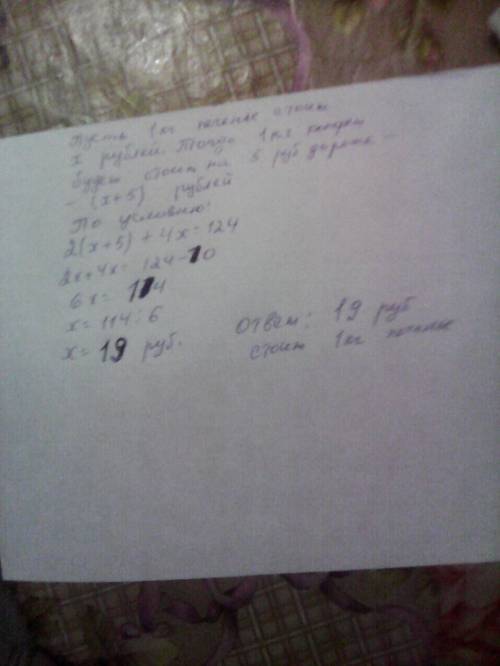 Пусть 1 кг печенье стоит
x рублей. Тогда 1 кг конфет
будет стоит на 5 руб дороже –
– (x+5) рублей
По условию:
2(x+5) + 4x = 124
2x+4x = 124-10
6x = 114
x = 114 : 6
x = 19 руб.
ответ: 19 руб
стоит 1 кг печенье